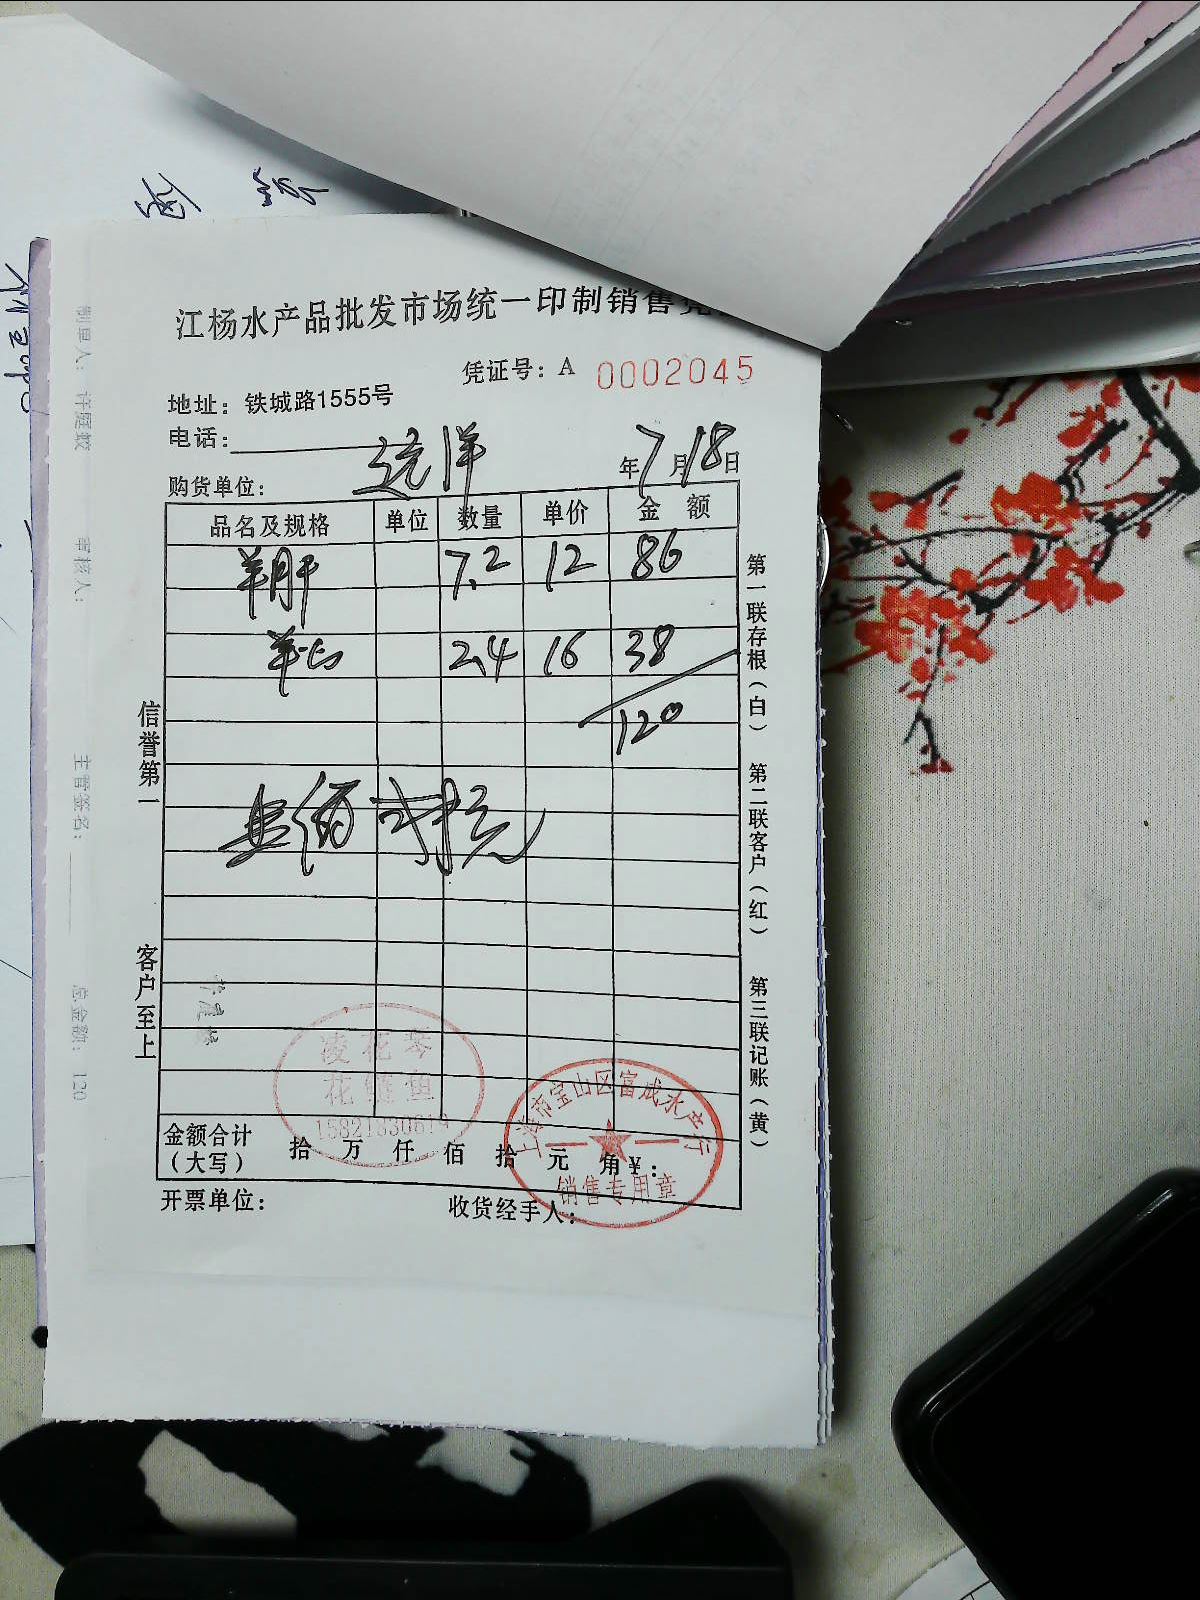 江杨水产品批发市场统一印制销售凭
凭证号：A 0002045
地址：铁城路1555号
电话：
购货单位： 远洋 年7月18日
品名及规格 单位 数量 单价 金 额
羊肝 7.2 12 86
羊心 2.4 16 38
120
壹佰贰拾元
信誉第一
客户至上
第一联存根（白）
第二联客户（红）
第三联记账（黄）
凌花琴
花鲢鱼
上海市宝山区富成水产行
销售专用章
金额合计（大写） 拾 万 仟 佰 拾 元 角￥：
开票单位： 收货经手人：
制单人：许庭蛟
审核人：
主管签名：
总金额：120